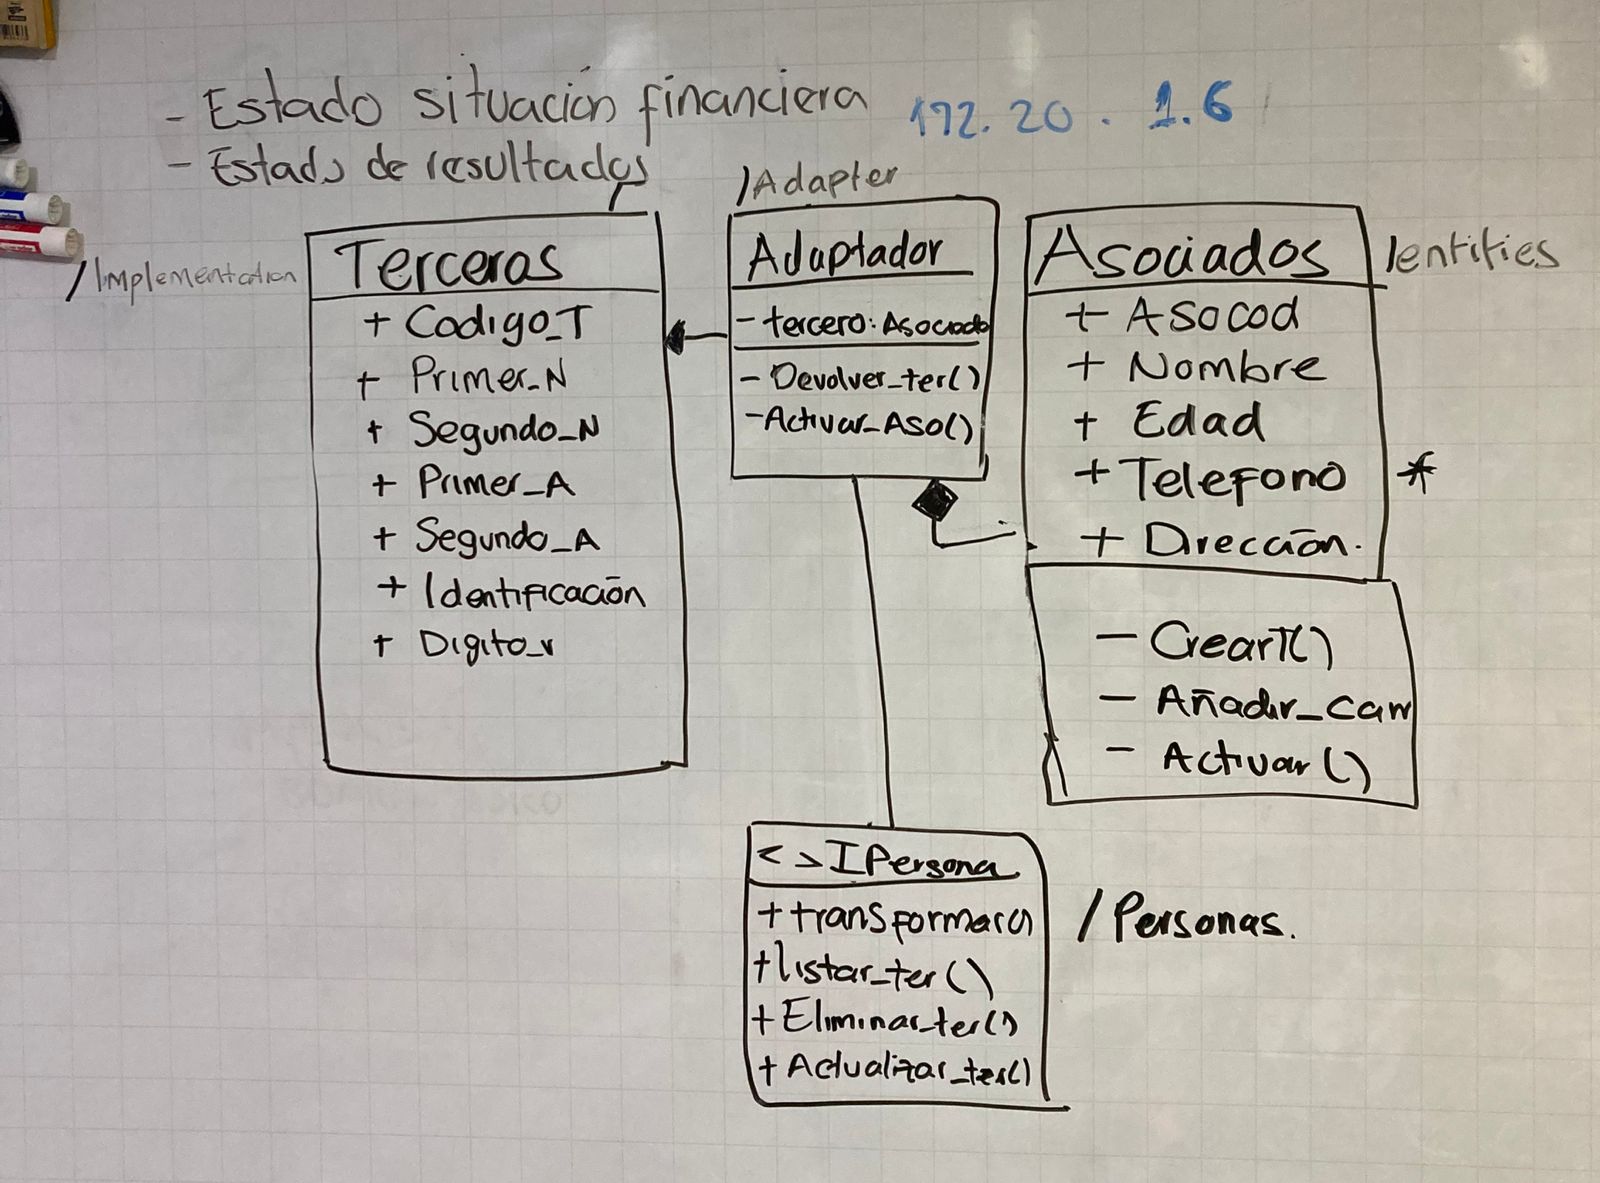 - Estado situación financiera 172.20.1.6
- Estado de resultados
/Implementation
Terceros
+ Codigo_T
+ Primer_N
+ Segundo_N
+ Primer_A
+ Segundo_A
+ Identificación
+ Digito_v
/Adapter
Adaptador
- tercero: Asociado
- Devolver_ter()
- Activar_Aso()
Asociados
/entities
+ Asocod
+ Nombre
+ Edad
+ Telefono *
+ Dirección.
- CrearT()
- Añadir_cam
- Activar()
< > IPersona
+ transformar()
+ listar_ter()
+ Eliminar_ter()
+ Actualizar_ter()
/Personas.